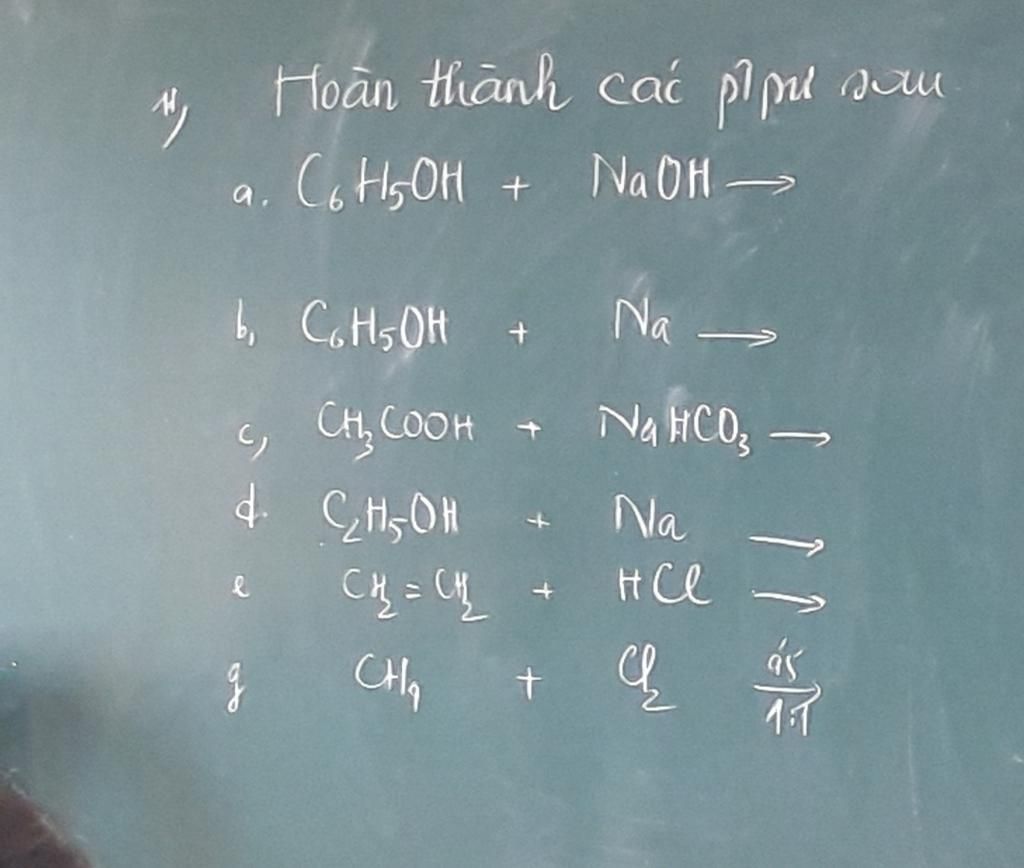 Hoàn thành các ptpư sau
a. C₆H₅OH + NaOH →
b, C₆H₅OH + Na →
c, CH₃COOH + NaHCO₃ →
d. C₂H₅OH + Na →
e CH₂=CH₂ + HCl →
g CH₄ + Cl₂ ás → 1:1